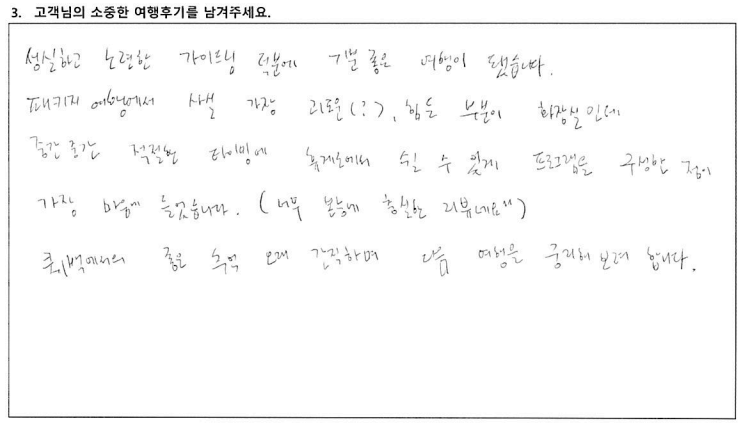 3. 고객님의 소중한 여행후기를 남겨주세요.
성실하고 노련한 가이드님 덕분에 기분 좋은 여행이 됐습니다.
패키지 여행에서 사실 가장 괴로운(?), 힘든 부분이 화장실인데
중간중간 적절한 타이밍에 휴게소에서 쉴 수 있게 프로그램을 구성한 점이
가장 마음에 들었습니다. (너무 본능에 충실한 리뷰네요^^)
퀘벡에서의 좋은 추억 오래 간직하며 다음 여행을 궁리해 보려 합니다.